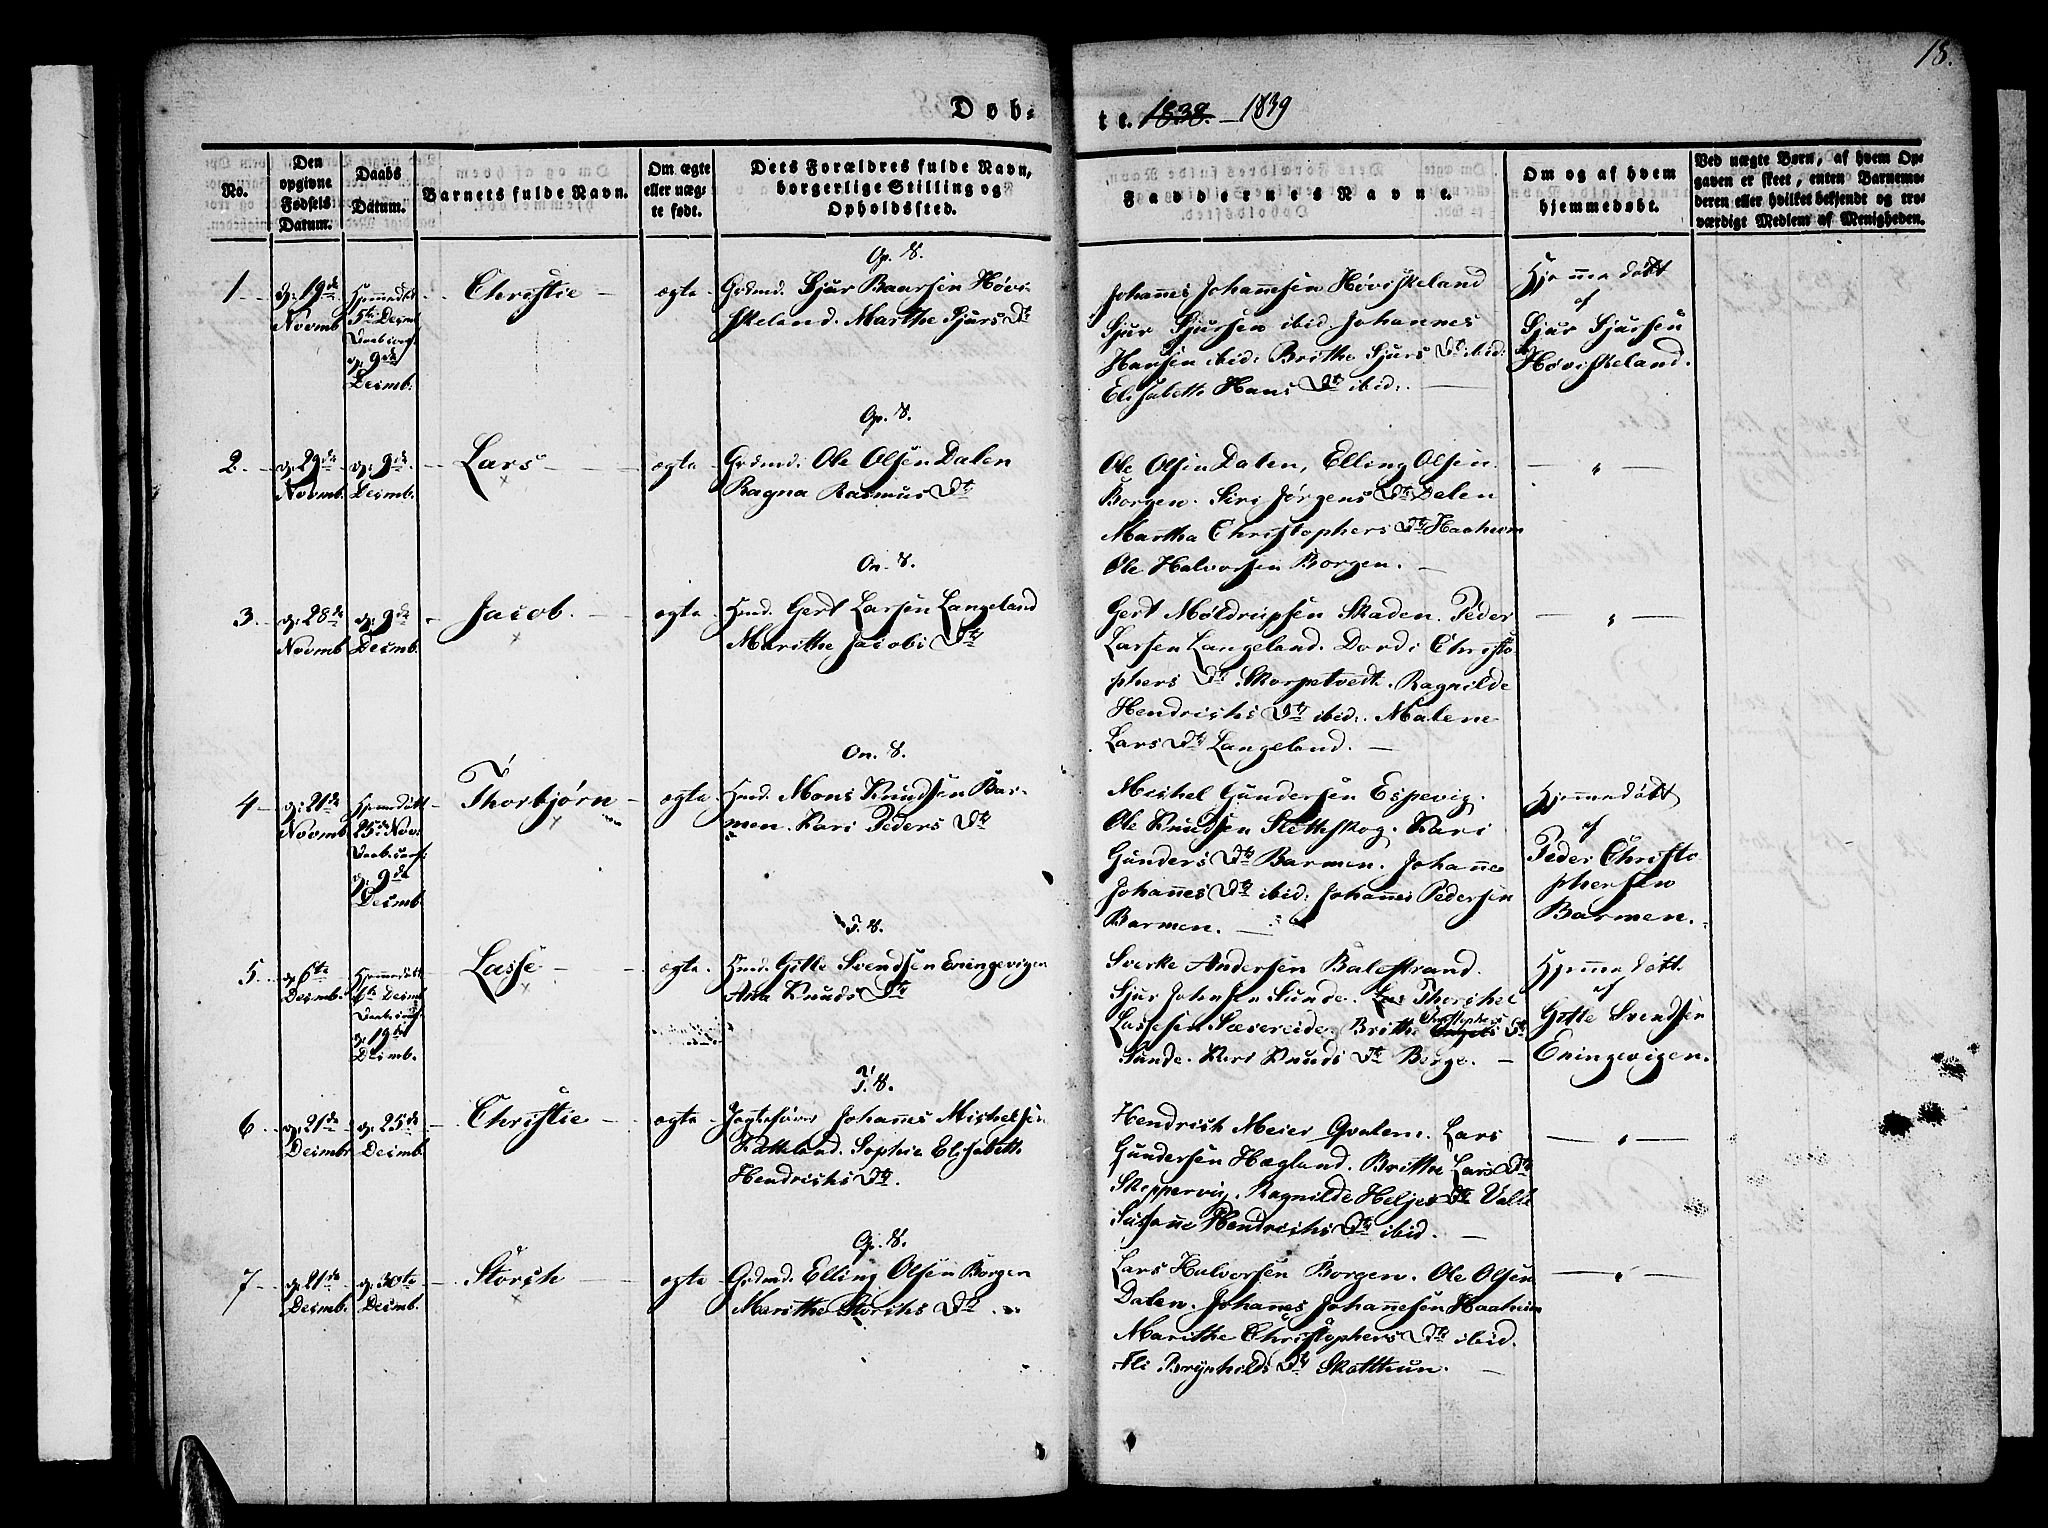 18.
Dob-
te. 1838. - 1839
No.
Den
opgivne
Fødsels
Datum.
Daabs
Datum.
Barnets fulde Navn.
Om ægte
eller uæg-
te født.
Dets Forældres fulde Navn,
borgerlige Stilling og
Opholdssted.
Faddernes Navne.
Om og af hvem
hjemmedøbt.
Ved uægte Børn, af hvem Op-
gaven er skeet, enten Barnemo-
deren eller hvilket bekjendt og tro-
værdigt Medlem af Menigheden.
Op. S.
1 d: 19de
Novmb
Hjemmedøbt
5te Decmb
d: 9de
Decmb.
Christie
ægte
Grdmd. Sjur Baarsen Høvi
skeland. Marthe Sjurs Dtr
Johannes Johannesen Høviskeland
Sjur Sjursen ibid. Johannes
Hansen ibid: Brithe Sjurs Dtr ibid:
Elisabeth Hans Dtr ibid:
Hjemmedøbt
af
Sjur Sjursen
Høviskeland.
Op. S.
2. d: 29de
Novmb.
d: 9de
Decmb.
Lars
ægte
Grdmd. Ole Olsen Dalen
Ragna Rasmus Dtr
Ole Olsen Dalen, Elling Olsen
Borgen. Siri Jørgens Dtr Dalen
Martha Christophers Dtr Haaheim
Ole Halvorsen Borgen.
"
On. S.
3. d: 28de
Novmb
d: 9de
Decmb.
Jacob.
ægte
Hmd. Gert Larsen Langeland
Marithe Jacobs Dtr
Gert Møldrupsen Skaden. Peder
Larsen Langeland. Dordi Christo
phers Dtr Skorpetvedt. Ragnilde
Hendrichs Dtr ibid: Malene
Lars Dtr Langeland.
"
On. S.
4 d: 21de
Novmb
Hjemmedøbt
25de Nov:
d: 9de
Decmb
Thorbjørn
ægte
Hmd. Mons Knudsen Bar-
men. Kari Peders Dtr
Michel Gundersen Espevig.
Ole Knudsen Slethskog. Kari
Gunders Dtr Barmen. Johanne
Johannes Dtr ibid: Johannes Pedersen
Barmen.
Hjemmedøbt
af
Peder Christo
phersen
Barmen.
T. S.
5. d: 6te
Decmb.
Hjemmedøbt
Decmb
d: 19de
Decmb.
Lasse
ægte.
Hmd. Gitle Svendsen Eningevigen
Ana Knuds Dtr
Sverke Andersen Balestrand.
Sjur Johnsen Sunde. Thorchel
Lassesen Sævereide. Brithe Christophers Dtr
Sunde. Kari Knuds Dtr Borge.
Hjemmedøbt
af
Gitle Svendsen
Eningevigen.
T. S.
6 d: 21de
Decmbr
d: 25de
Decmb.
Christie
ægte
Jægtefører Johannes Michelsen
Sophie Elisabeth
Hendrichs Dtr.
Hendrich Meier Qvalem. Lars
Gundersen Hægland. Brithe Lars Dtr
Skeppervig. Ragnilde Heljes Dtr Valle
Susanne Hendrichs Dtr ibid.
"
Op. S.
7 d: 21de
Decmb.
d: 30te
Decmb.
Storch
ægte
Grdmd. Elling Olsen Borgen
Marithe Storchs Dtr
Lars Halvorsen Borgen. Ole Olsen
Dalen. Johannes Johannesen Haaheim
Marithe Christophers Dtr ibid.
Ali Brynhilds Dtr Skotthun.
"